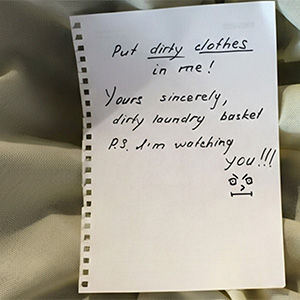 Put dirty clothes
in me!
Yours sincerely,
dirty laundry basket
P.S. I'm watching
you!!!